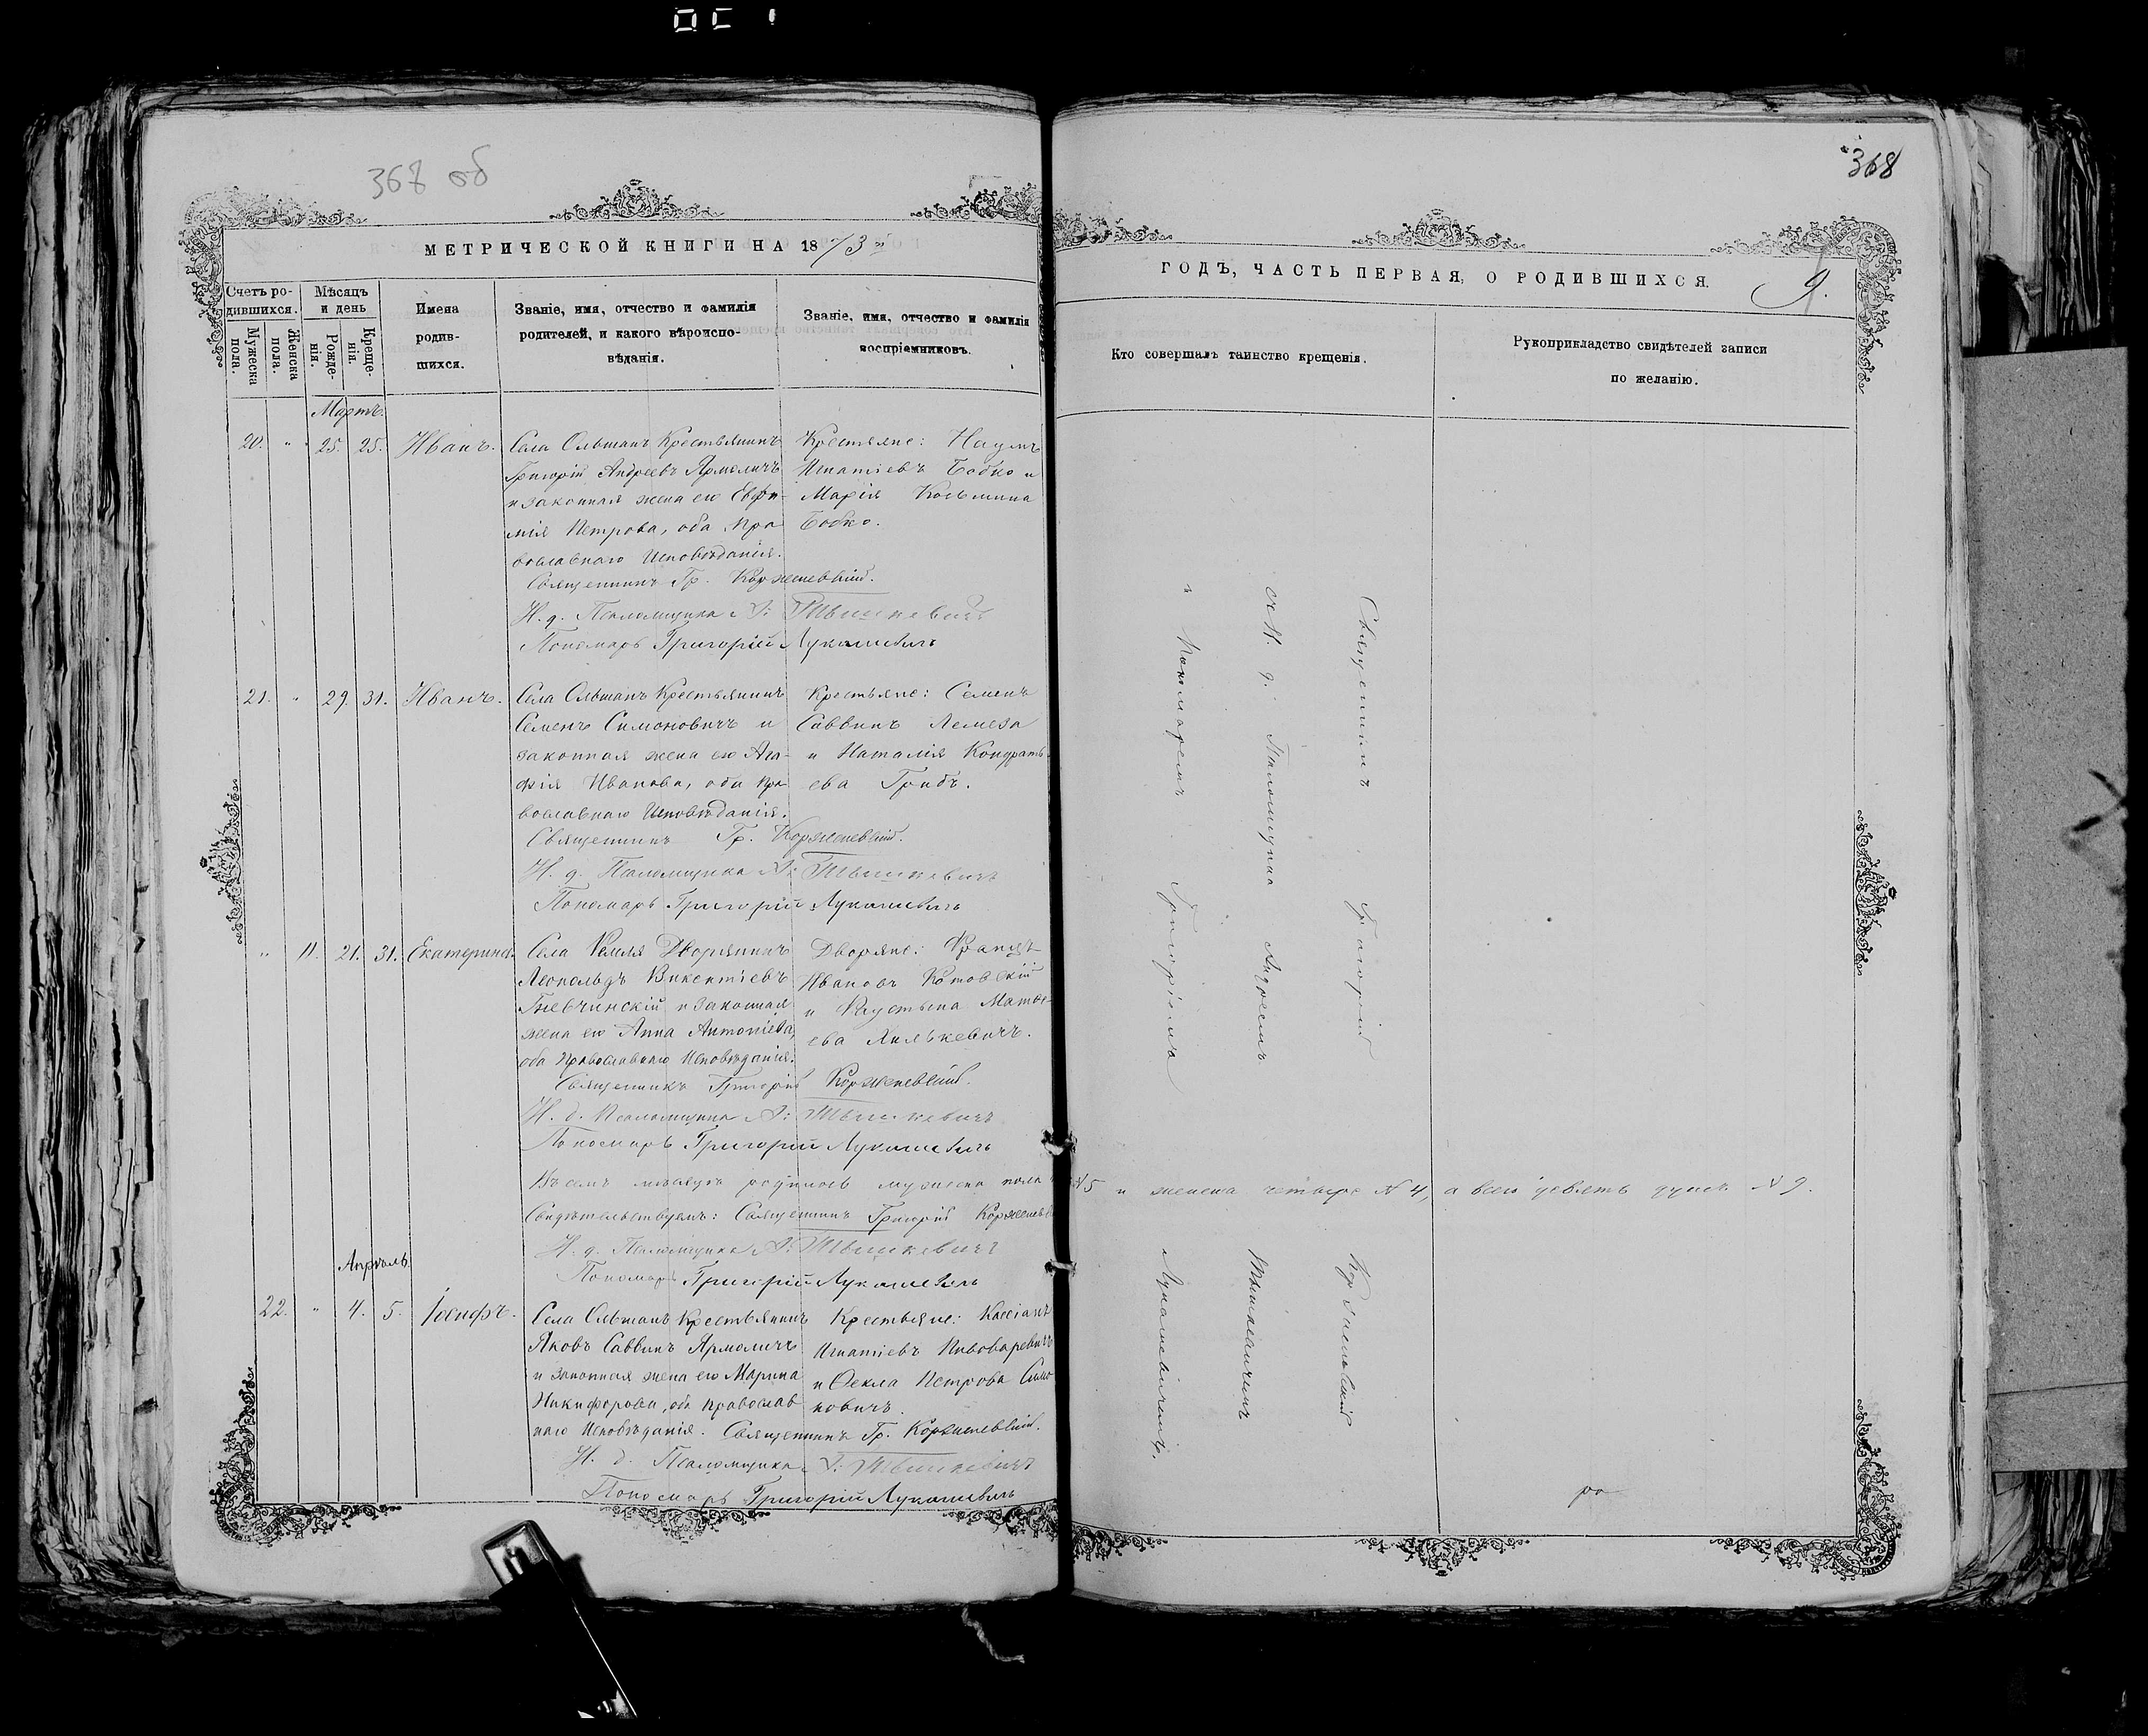 368 об
МЕТРИЧЕСКОЙ КНИГИ НА 1873й
Счетъ ро-
дившихся.
Мужеска
пола.
Женска
пола.
Мѣсяцъ
и день
Рожде-
нія.
Креще-
нія.
Имена
родив-
шихся.
Званіе, имя, отчество и фамилія
родителей, и какого вѣроиспо-
вѣданія.
Званіе, имя, отчество и фамилія
воспріемниковъ.
Мартъ.
20. " 25. 25. Иванъ.
Села Ольшанъ Крестьянинъ
Григорій Андреевъ Ярмоличъ
и законная жена его Евфи-
мія Петрова, оба пра
вославнаго Исповѣданія.
Крестьяне: Наумъ
Игнатіевъ Бобко и
Марія Козьмина
Бобко.
Священникъ Гр. Корженевскій.
И. д. Псаломщика А: Тышкевичъ
Пономарь Григорій Лукашевичъ
21. " 29. 31. Иванъ.
Села Ольшанъ Крестьянинъ
Семенъ Симоновичъ и
законная жена его Ага-
фія Иванова, оба пра
вославнаго Исповѣданія.
Крестьяне: Семенъ
Саввинъ Лемеза
и Наталія Кондрать
ева Грибъ.
Священникъ Гр. Корженевскій.
И. д. Псаломщика А: Тышкевичъ
Пономарь Григорій Лукашевичъ
" 11. 21. 31. Екатерина.
Села Дворянинъ
Леопольдъ Викентіевъ
и законная
жена его Анна Антоніева,
оба Православнаго Исповѣданія.
Дворяне: Францъ
Ивановъ Котовскій
и Фаустына Матѳе-
ева Хилькевичъ.
Священникъ Григорій Корженевскій.
И. д. Псаломщика А: Тышкевичъ
Пономарь Григорій Лукашевичъ
Въ семъ мѣсяцѣ родилось мужеска пола № 5 и женска четыре № 4, а всего девять душъ № 9.
Свидѣтельствуемъ: Священникъ Григорій Корженевскій
И. д. Псаломщика А: Тышкевичъ
Пономарь Григорій Лукашевичъ
Апрѣль
22. " 4. 5. Іосифъ.
Села Ольшанъ Крестьянинъ
Яковъ Саввинъ Ярмоличъ
и законная жена его Марина
Никифорова, оба православ
наго Исповѣданія.
Крестьяне: Кассіанъ
Игнатіевъ Пивоваревичъ
и Ѳекла Петрова Симо
новичъ.
Священникъ Гр. Корженевскій.
И. д. Псаломщика А: Тышкевичъ
Пономарь Григорій Лукашевичъ
368
ГОДЪ, ЧАСТЬ ПЕРВАЯ, О РОДИВШИХСЯ.
9.
Кто совершалъ таинство крещенія.
Рукоприкладство свидѣтелей записи
по желанію.
Священникъ Григорій Корженевскій
съ И. д. Псаломщика Андреемъ Тышкевичемъ
и Пономаремъ Григоріемъ Лукашевичемъ.